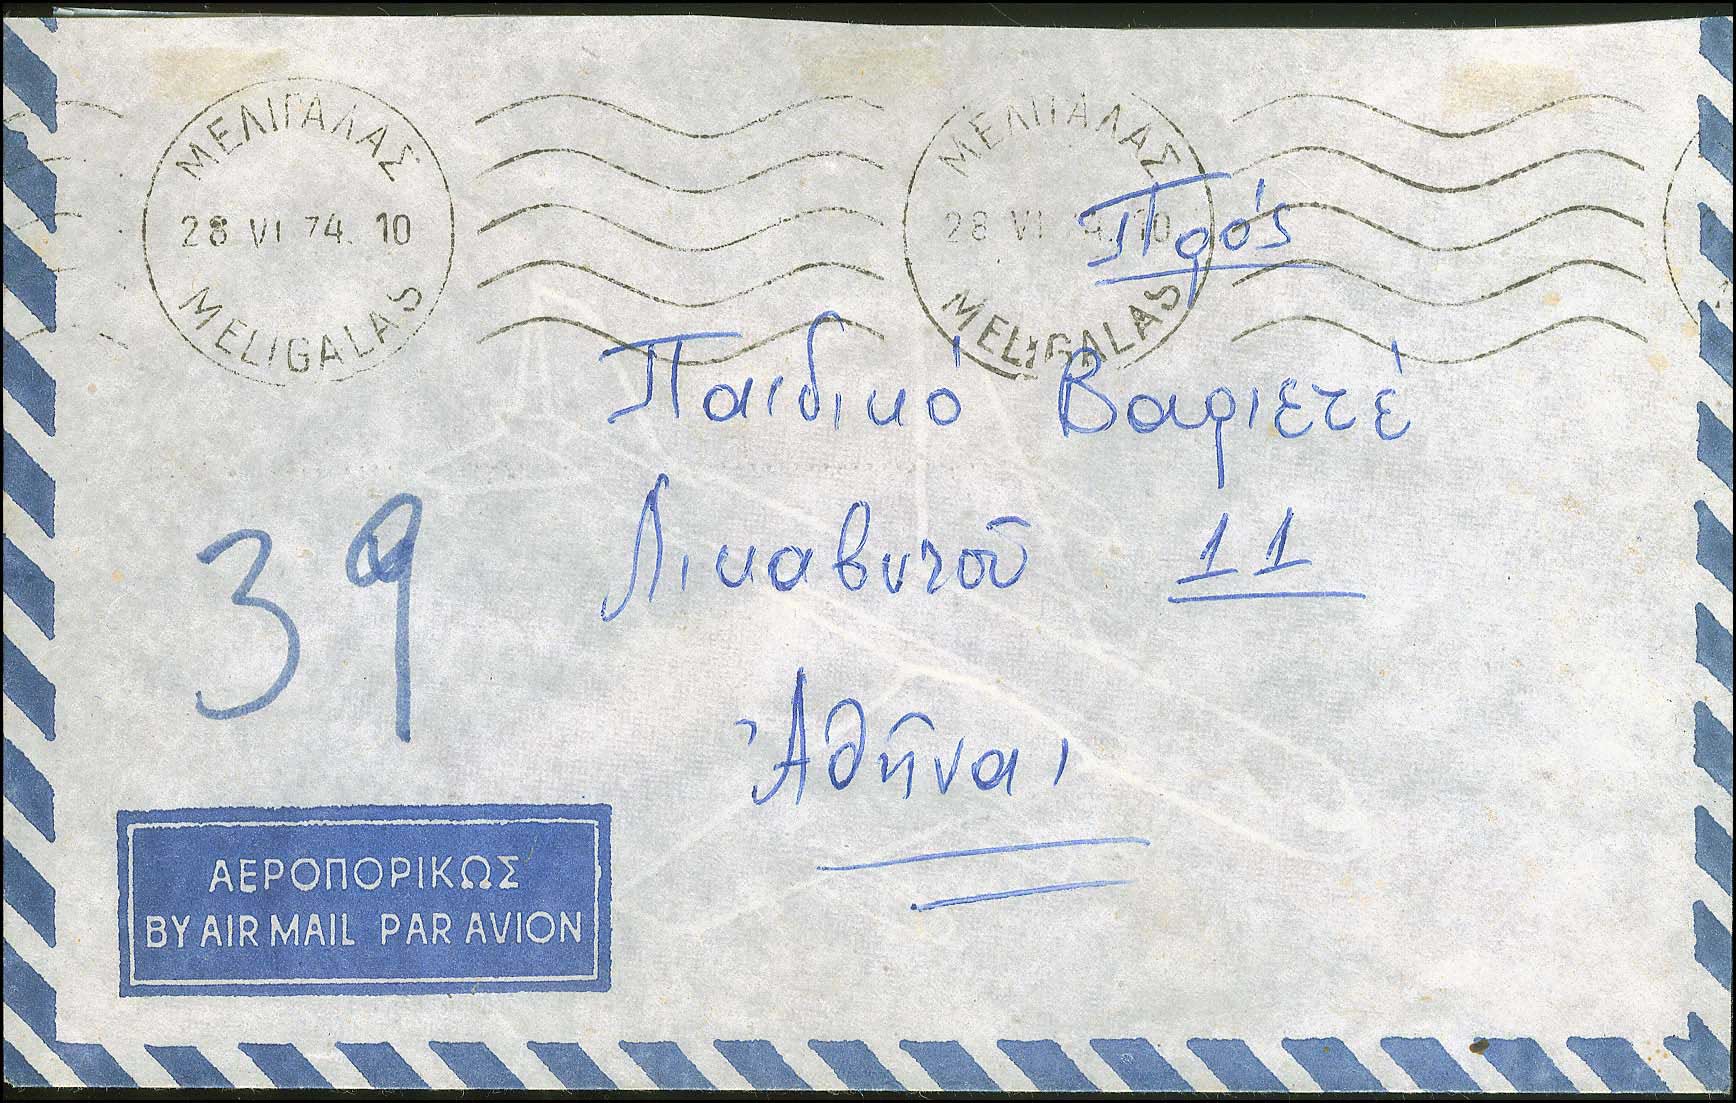 ΜΕΛΙΓΑΛΑΣ
28 VI 74. 10
MELIGALAS
ΜΕΛΙΓΑΛΑΣ
28 VI 74. 10
MELIGALAS
Πρός
Παιδικό Βαριετέ
Λικαβυτοῦ 11
Ἀθῆναι
39
ΑΕΡΟΠΟΡΙΚΩΣ
BY AIR MAIL PAR AVION